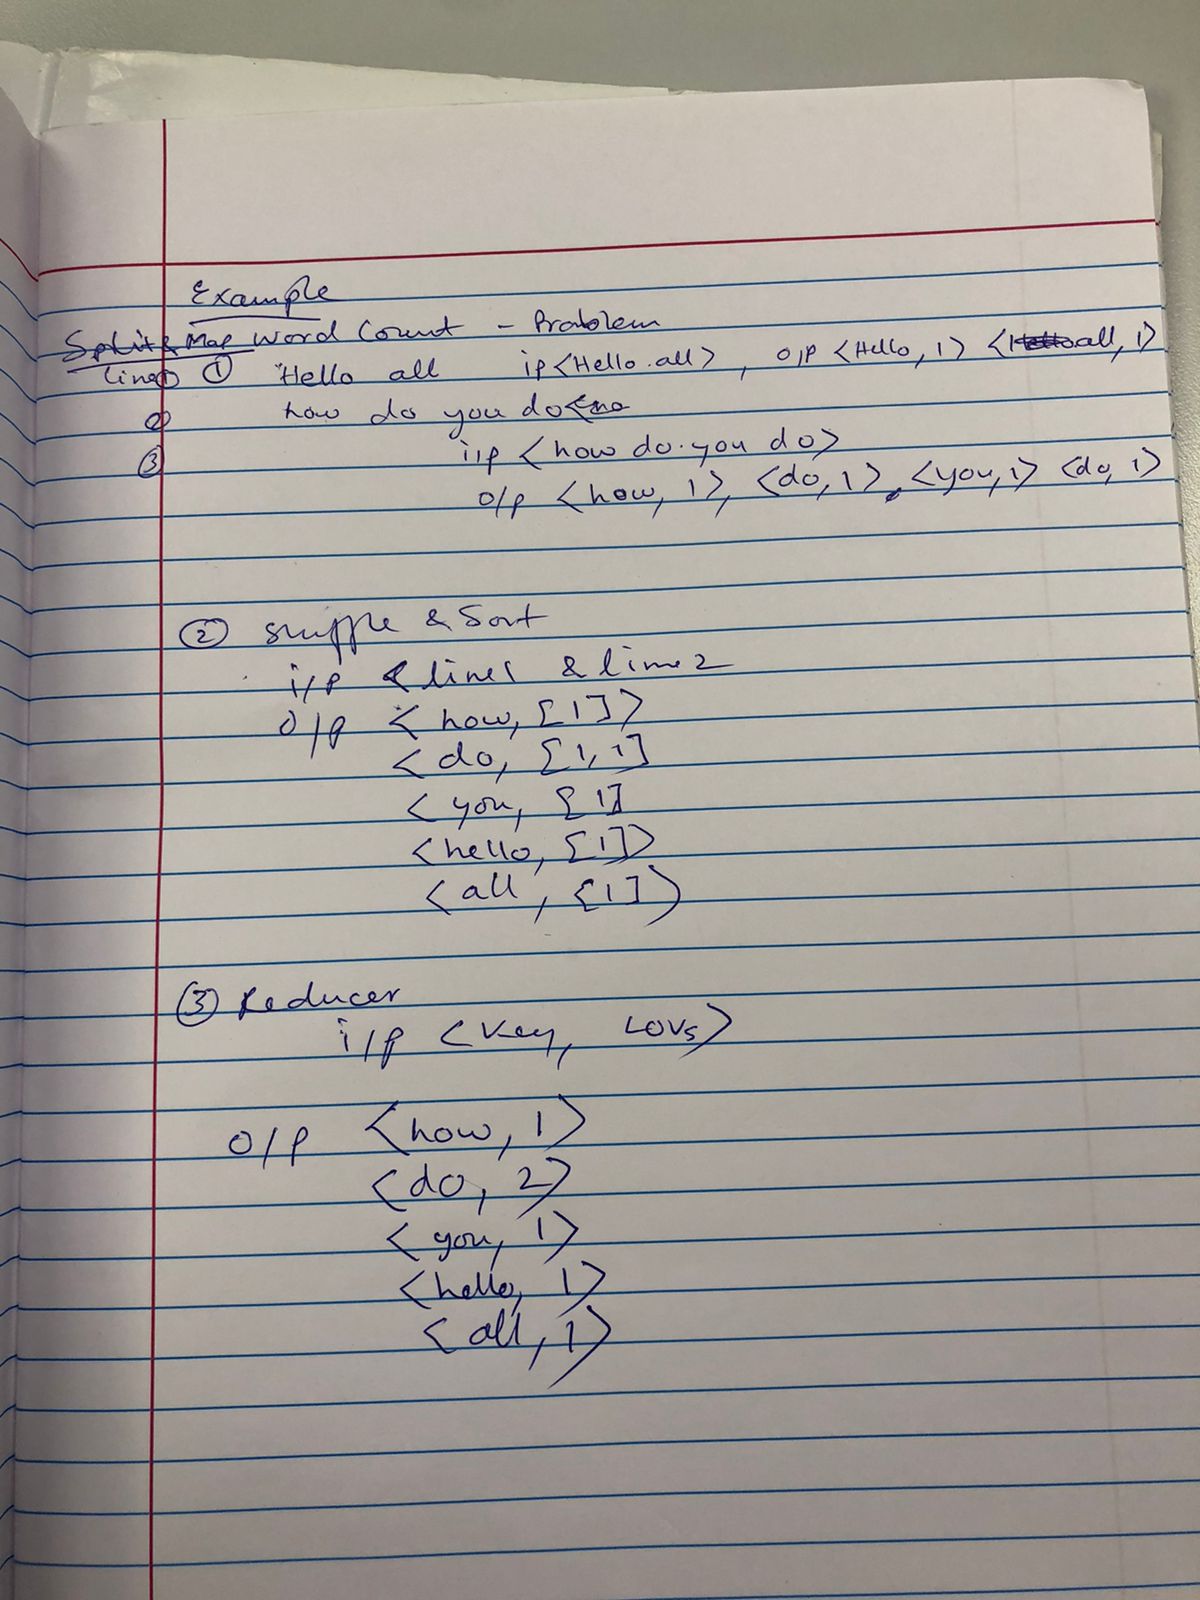 Example
Split & Map Word Count - Problem
line 1 ① Hello all ip <Hello.all>, o/p <Hello, 1> <all, 1>
② how do you do
③ i/p <how do.you do>
o/p <how, 1>, <do, 1>, <you, 1> <do, 1>
② Shuffle & Sort
i/p < line1 & line2
o/p < how, [1]>
< do, [1, 1]
< you, [1]
<hello, [1]>
< all, [1]>
③ Reducer
i/p <Key, LOVs>
o/p <how, 1>
<do, 2>
<you, 1>
<hello, 1>
<all, 1>